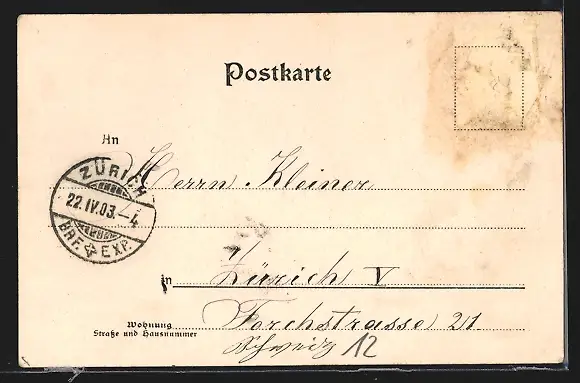 Postkarte
An Herrn Kleiner
ZÜRICH
22.IV.03.–4
BRF. EXP.
in Zürich V
Wohnung
Straße und Hausnummer
Forchstrasse 21.
Schweiz 12